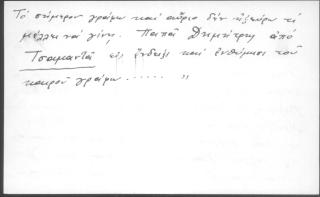 Τὸ σήμερον γράφω καὶ αὔριο δὲν ἠξεύρω τί
μέλλει νὰ γίνῃ. Παπᾶ Δημήτρης ἀπὸ
Τσαμαντᾶ εἰς ἔνδειξι καὶ ἐνθύμισι τοῦ
καιροῦ γράφω ..... "